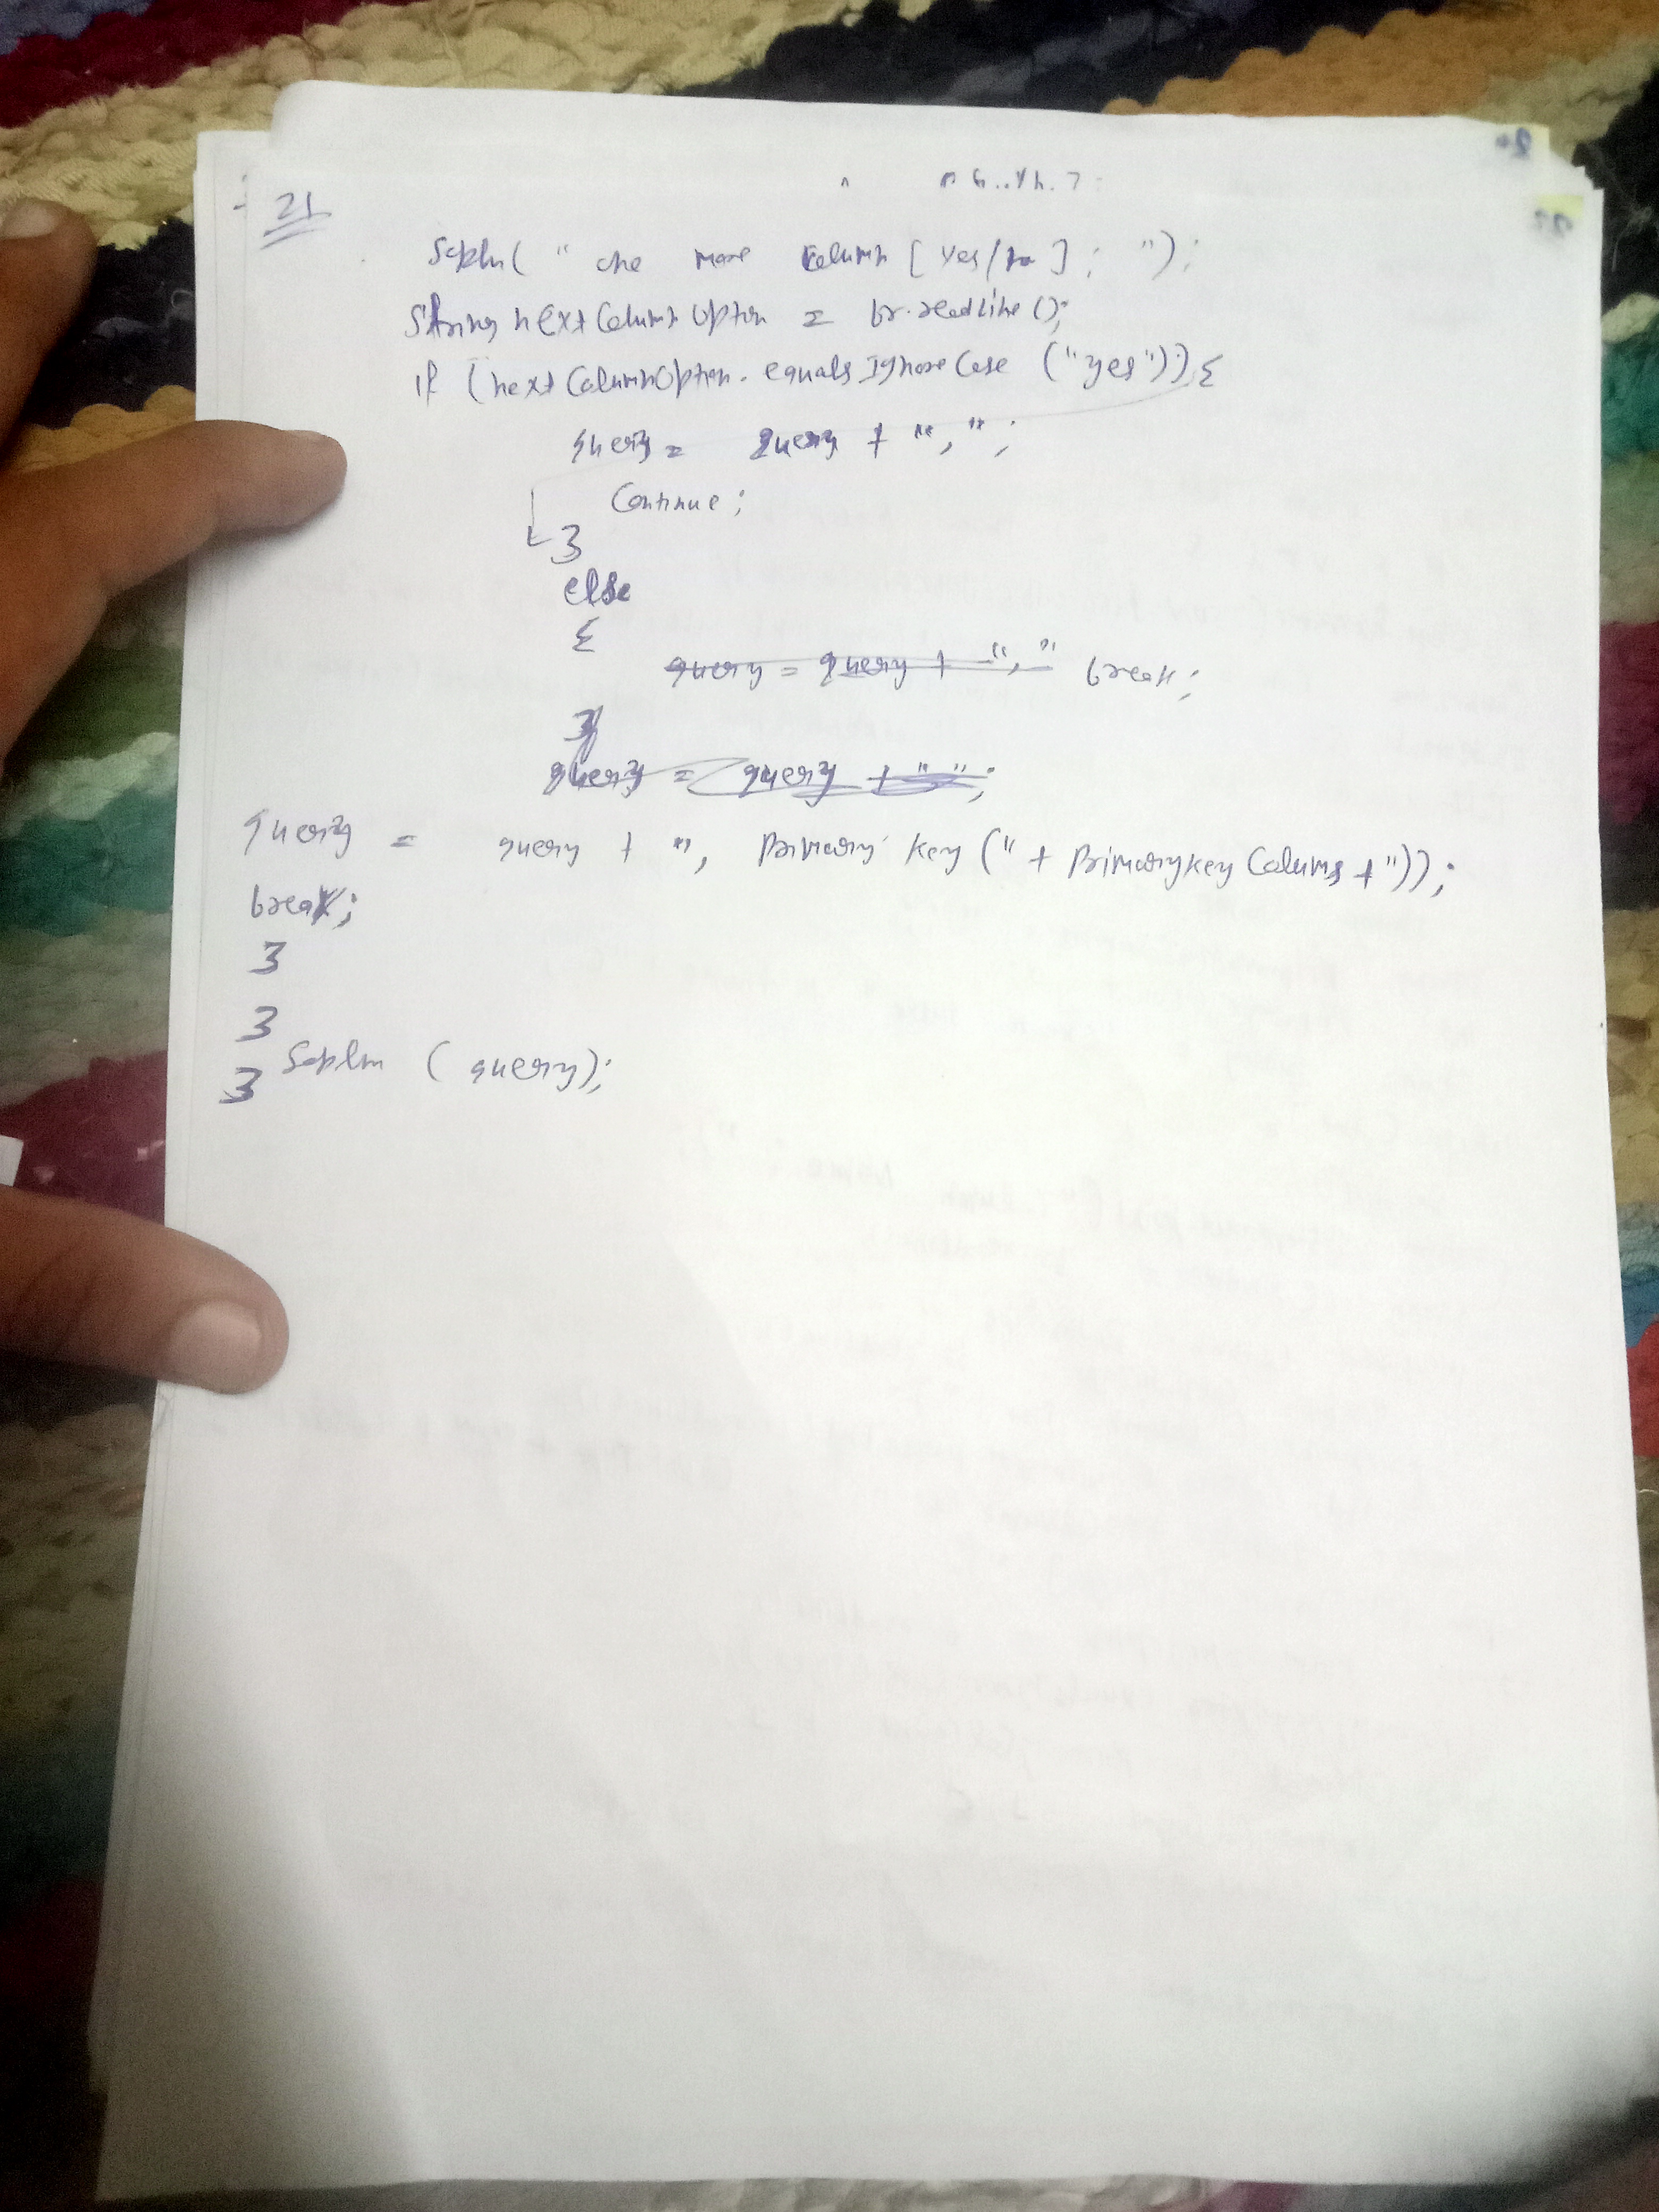 21
Sopln( " one more column [ yes/no ] : ");
String nextColumnOption = br.readLine();
if (nextColumnOption.equalsIgnoreCase ("yes")) {
query = query + ",";
Continue;
}
else
{
query = query + "," break;
}
query = query + " ";
query = query + ", Primary key (" + PrimarykeyColums + "));
break;
}
}
} Sopln (query);